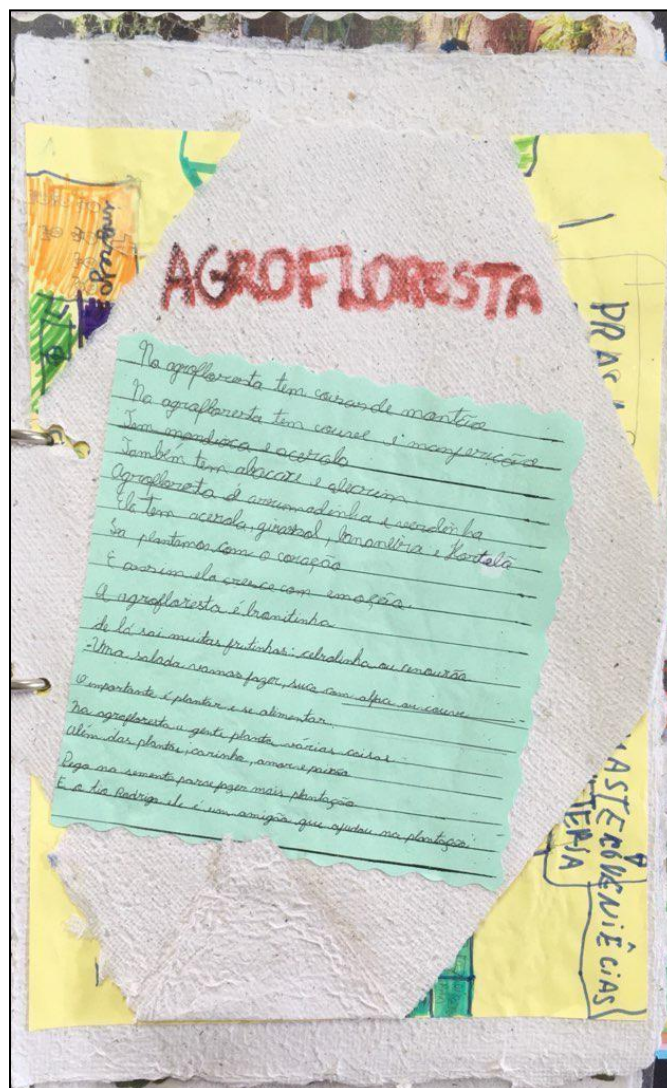 AGROFLORESTA
Na agrofloresta tem coisas de montão
Na agrofloresta tem couve e manjericão
Tem mandioca e acerola
Também tem abacate e alecrim
Agrofloresta é arrumadinha e verdinha
Ela tem acerola, girassol, bananeira e Hortelã
Só plantamos com o coração
E assim ela cresce com emoção
A agrofloresta é bonitinha
de lá sai muitas frutinhas: cebolinha ou cenourão
-Uma salada vamos fazer, suco com alface ou couve
O importante é plantar e se alimentar
Na agrofloresta a gente planta várias coisas
Além das plantas, carinho, amor e paixão
Pega na semente para fazer mais plantação
E o tio Rodrigo ele é um amigão que ajudou na plantação
ingrejo
PRAÇ
CONVENIÊCIAS